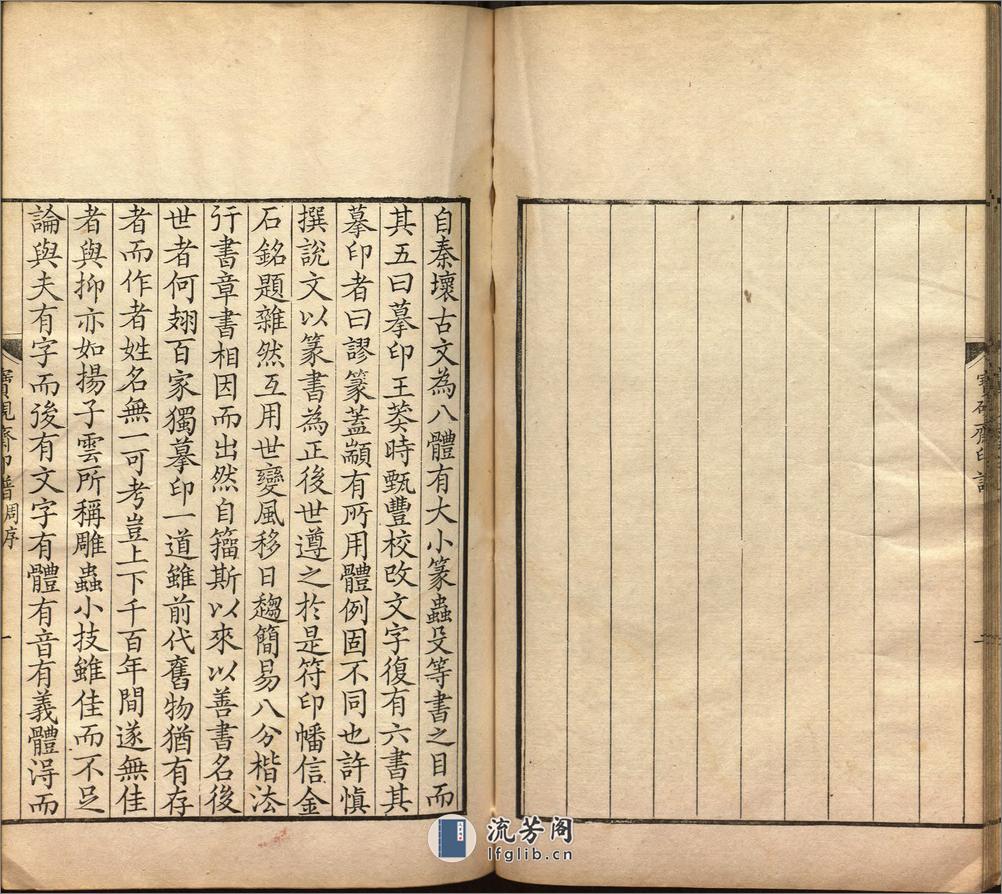 寶硯齋印譜
一
自秦壞古文為八體有大小篆蟲殳等書之目而
其五曰摹印王莽時甄豐校改文字復有六書其
摹印者曰謬篆蓋顓有所用體例固不同也許慎
撰說文以篆書為正後世遵之於是符印幡信金
石銘題雜然互用世變風移日趨簡易八分楷法
行書章書相因而出然自籀斯以來以善書名後
世者何翅百家獨摹印一道雖前代舊物猶有存
者而作者姓名無一可考豈上下千百年間遂無佳
者與抑亦如揚子雲所稱雕蟲小技雖佳而不足
論與夫有字而後有文字有體有音有義體淂而
寶硯齋印譜周序
一
流芳阁
lfglib.cn